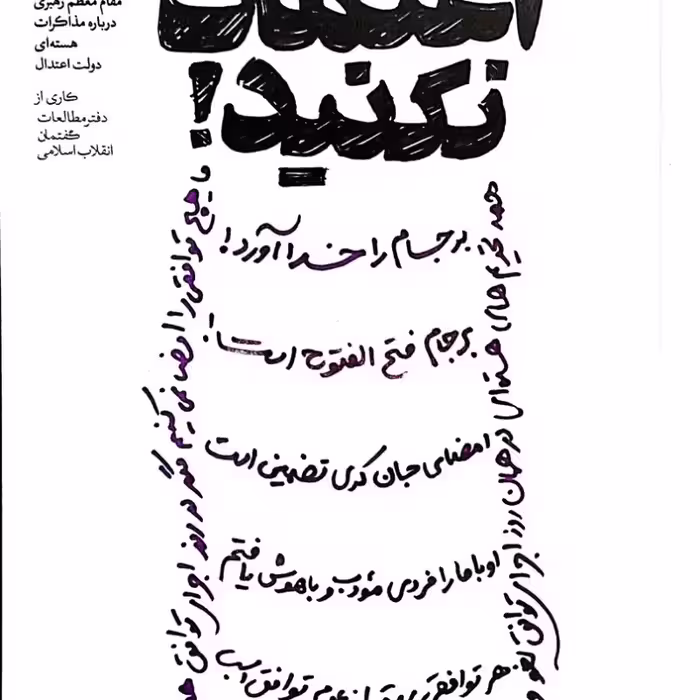 مقام معظم رهبری
درباره مذاکرات
هسته‌ای
دولت اعتدال
کاری از
دفتر مطالعات
گفتمان
انقلاب اسلامی
اعتماد
نکنید!
همه تحریم های هسته‌ای در همان روز اجرای توافق لغو
برجام را خدا آورد!
برجام فتح الفتوح است!
امضای جان کری تضمین است
اوباما را فردی مؤدب و باهوش یافتم
هر توافقی بهتر از عدم توافق است
ما هیچ توافقی را امضا نمی کنیم مگر در روز اجرای توافق